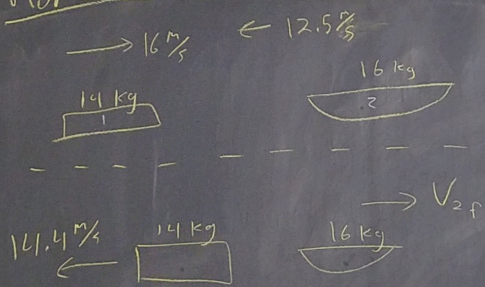 16 m/s
12.5 m/s
14 kg
16 kg
1
2
V2f
14.4 m/s
14 kg
16 kg